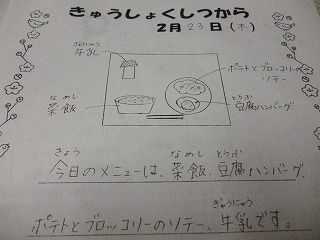 きゅうしょくしつから
2月23日(木)
ぎゅうにゅう
牛乳
ポテトとブロッコリーの
ソテー
なめし
菜飯
とうふ
豆腐ハンバーグ
きょう なめし とうふ
今日のメニューは、菜飯、豆腐ハンバーグ、
ぎゅうにゅう
ポテトとブロッコリーのソテー、牛乳です。